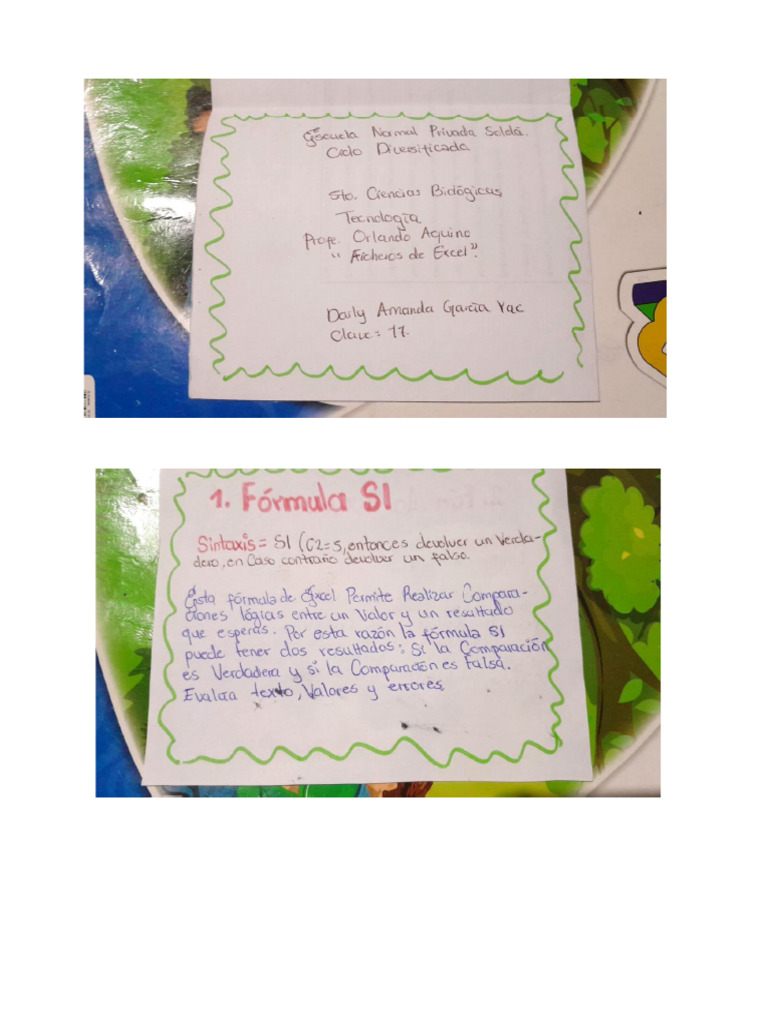 Escuela Normal Privada Seldá.
Ciclo Diversificada
5to. Ciencias Biológicas
Tecnología
Profe. Orlando Aquino
"Ficheros de Excel".
Darly Amanda García Yac
Clave: 11.
1. Fórmula SI
Sintaxis = SI (C2=5, entonces devolver un Verda-
dero, en Caso contrario devolver un falso.
Esta fórmula de Excel Permite Realizar Compara-
ciones lógicas entre un Valor y un resultado
que esperas. Por esta razón la fórmula SI
puede tener dos resultados: Si la Comparación
es Verdadera y si la Comparación es Falsa.
Evalúa texto, Valores y errores.